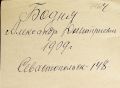 Бодня
Александр Дмитриевич
1909г.
Севастополь - 148